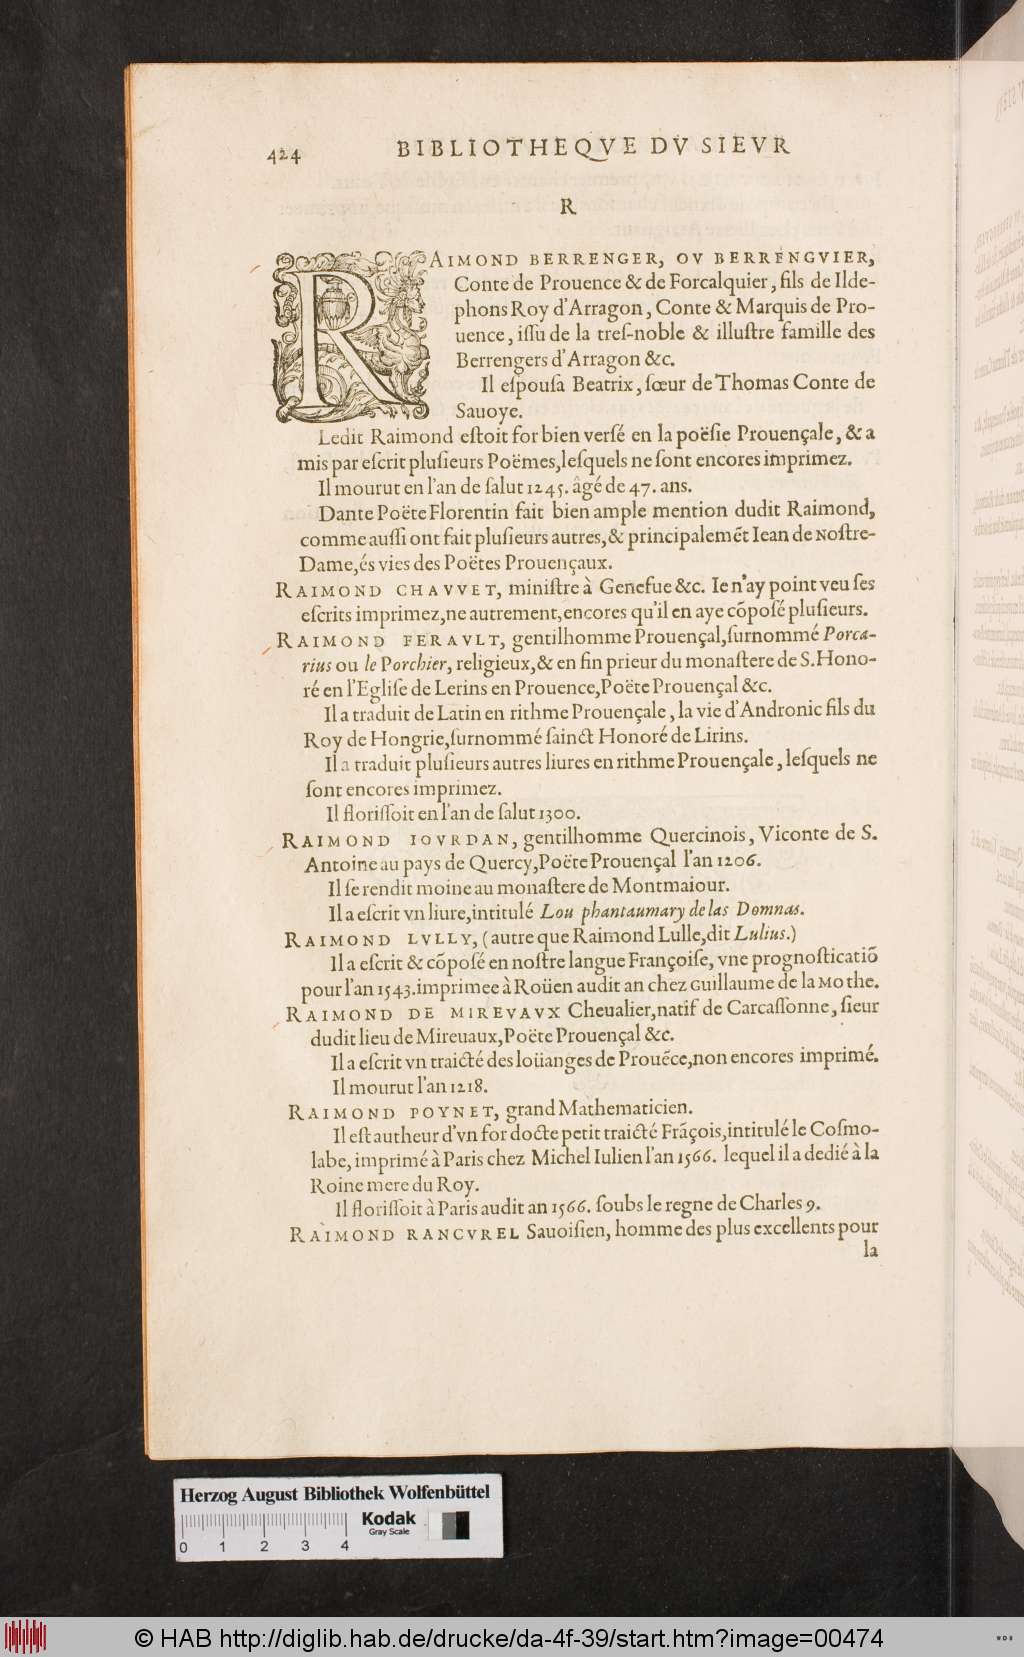 424 BIBLIOTHEQVE DV SIEVR
R
RAIMOND BERRENGER, OV BERRENGVIER,
Conte de Prouence & de Forcalquier, fils de Ilde-
phons Roy d'Arragon, Conte & Marquis de Pro-
uence, iſſu de la treſ-noble & illuſtre famille des
Berrengers d'Arragon &c.
Il eſpouſa Beatrix, ſœur de Thomas Conte de
Sauoye.
Ledit Raimond eſtoit for bien verſé en la poëſie Prouençale, & a
mis par eſcrit pluſieurs Poëmes, leſquels ne ſont encores imprimez.
Il mourut en l'an de ſalut 1245. âgé de 47. ans.
Dante Poëte Florentin fait bien ample mention dudit Raimond,
comme auſſi ont fait pluſieurs autres, & principalemẽt Iean de Noſtre-
Dame, és vies des Poëtes Prouençaux.
RAIMOND CHAVVET, miniſtre à Geneſue &c. Ie n'ay point veu ſes
eſcrits imprimez, ne autrement, encores qu'il en aye cõpoſé pluſieurs.
RAIMOND FERAVLT, gentilhomme Prouençal, ſurnommé Porca-
rius ou le Porchier, religieux, & en fin prieur du monaſtere de S. Hono-
ré en l'Egliſe de Lerins en Prouence, Poëte Prouençal &c.
Il a traduit de Latin en rithme Prouençale, la vie d'Andronic fils du
Roy de Hongrie, ſurnommé ſainct Honoré de Lirins.
Il a traduit pluſieurs autres liures en rithme Prouençale, leſquels ne
ſont encores imprimez.
Il floriſſoit en l'an de ſalut 1300.
RAIMOND IOVRDAN, gentilhomme Quercinois, Viconte de S.
Antoine au pays de Quercy, Poëte Prouençal l'an 1206.
Il ſe rendit moine au monaſtere de Montmaiour.
Il a eſcrit vn liure, intitulé Lou phantaumary de las Domnas.
RAIMOND LVLLY, (autre que Raimond Lulle, dit Lulius.)
Il a eſcrit & cõpoſé en noſtre langue Françoiſe, vne prognoſticatiõ
pour l'an 1543. imprimee à Roüen audit an chez Guillaume de la Mothe.
RAIMOND DE MIREVAVX Cheualier, natif de Carcaſſonne, ſieur
dudit lieu de Mireuaux, Poëte Prouençal &c.
Il a eſcrit vn traicté des loüanges de Prouẽce, non encores imprimé.
Il mourut l'an 1218.
RAIMOND POYNET, grand Mathematicien.
Il eſt autheur d'vn for docte petit traicté Frãçois, intitulé le Coſmo-
labe, imprimé à Paris chez Michel Iulien l'an 1566. lequel il a dedié à la
Roine mere du Roy.
Il floriſſoit à Paris audit an 1566. ſoubs le regne de Charles 9.
RAIMOND RANCVREL Sauoiſien, homme des plus excellents pour
la
Herzog August Bibliothek Wolfenbüttel
Kodak
Gray Scale
0 1 2 3 4
© HAB http://diglib.hab.de/drucke/da-4f-39/start.htm?image=00474